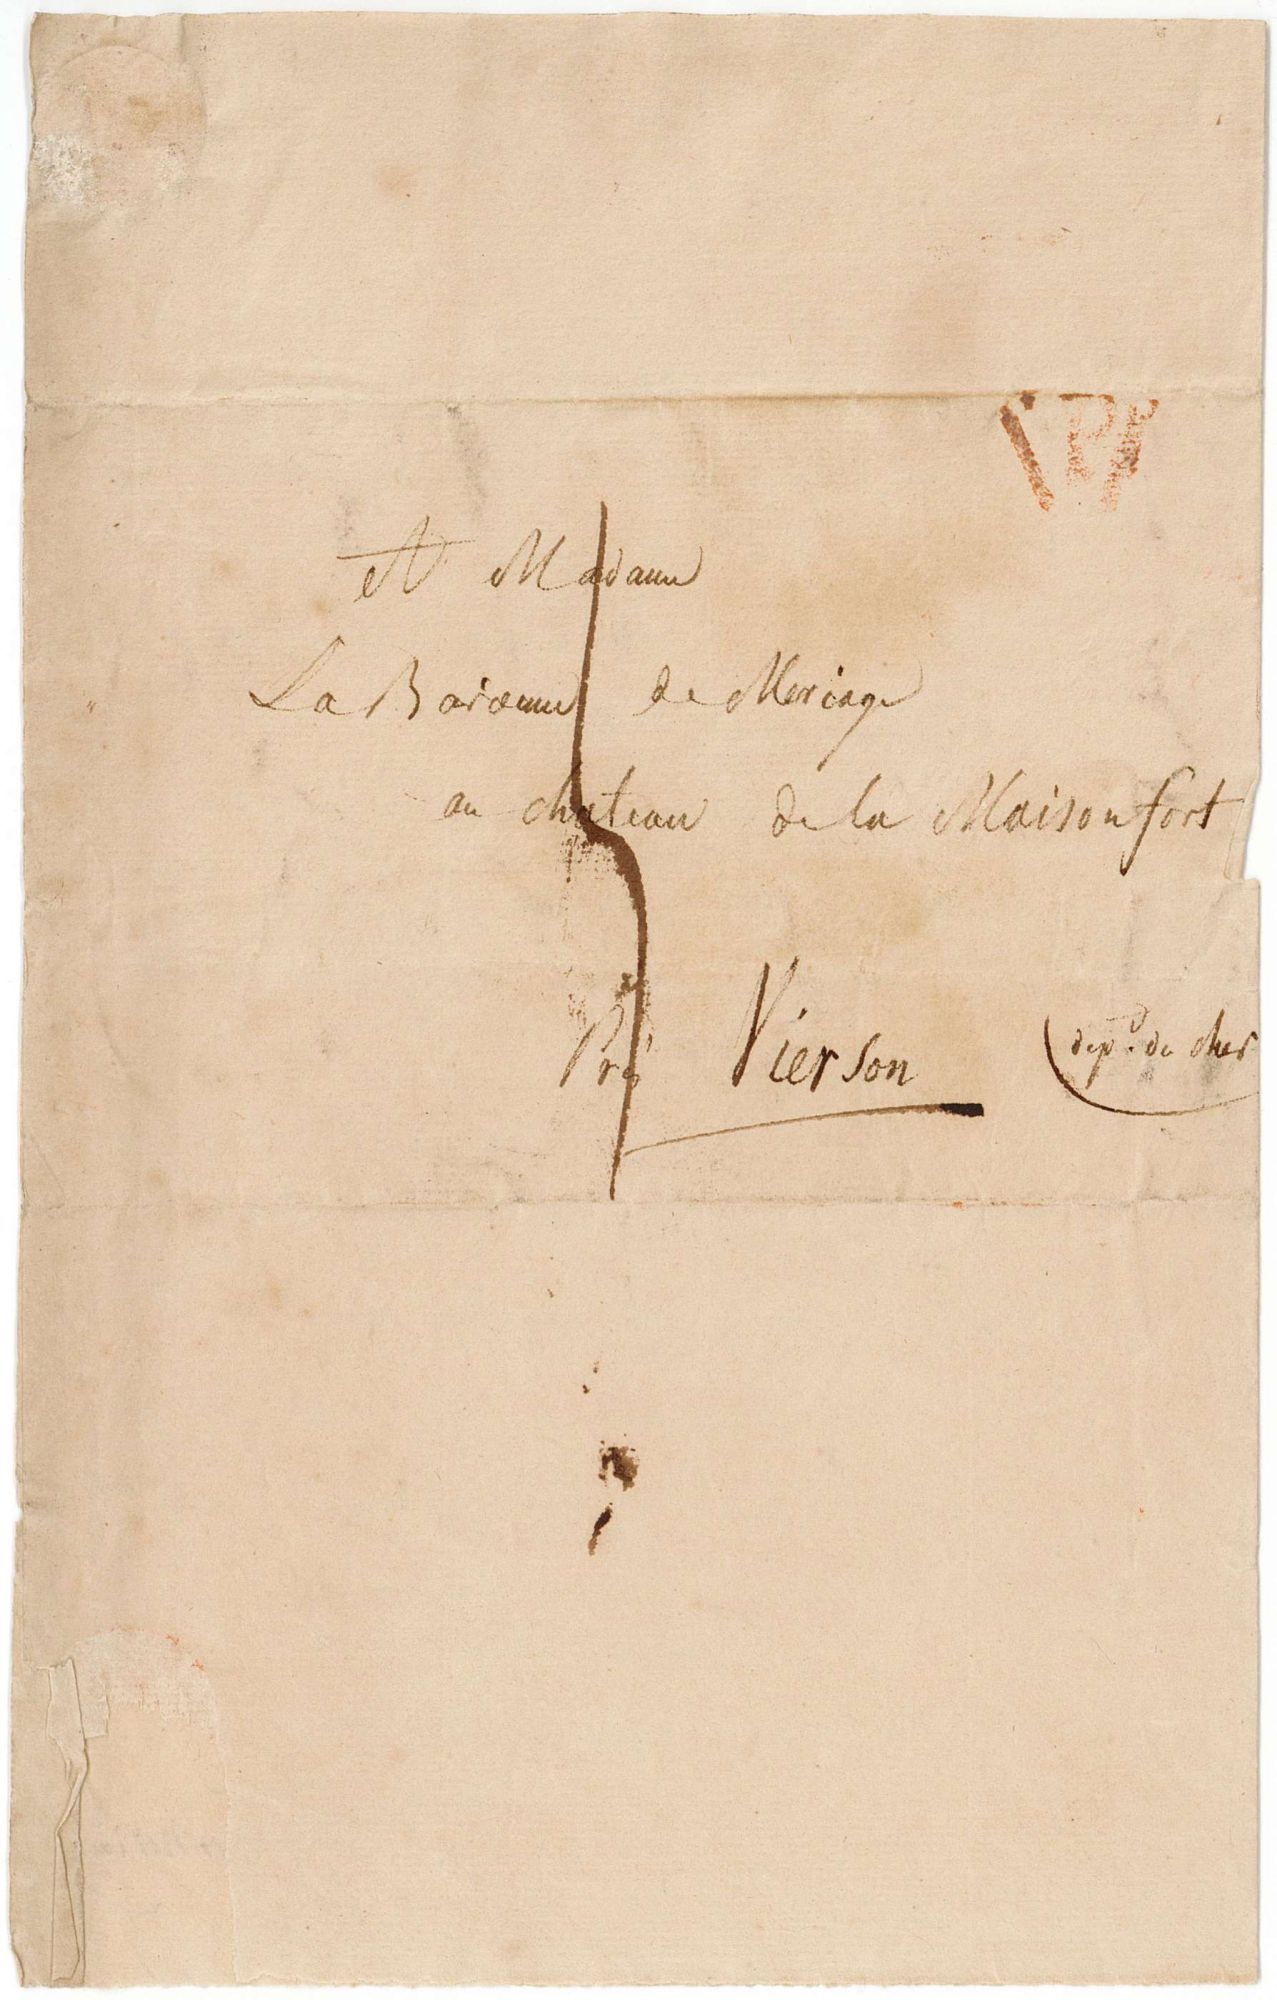 P
A Madame
La Baronne de Meriage
au chateau de la Maisonfort
Prés Vierson (dept. de cher